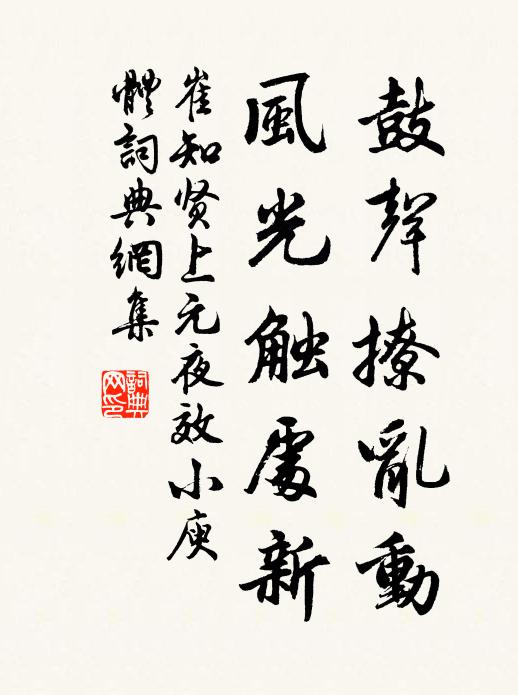 鼓聲撩亂動
風光触處新
崔知贤上元夜效小庾
體詞典網集
詞典
网印